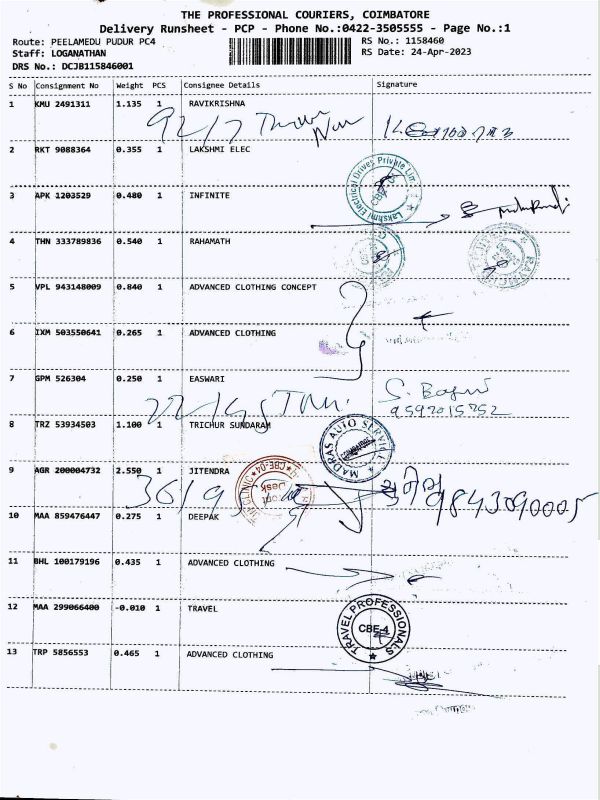 THE PROFESSIONAL COURIERS, COIMBATORE
Delivery Runsheet - PCP - Phone No.:0422-3505555 - Page No.:1
Route: PEELAMEDU PUDUR PC4
RS No.: 1158460
Staff: LOGANATHAN
RS Date: 24-Apr-2023
DRS No.: DCJB115846001
S No Consignment No Weight PCS Consignee Details Signature
1 KMU 2491311 1.135 1 RAVIKRISHNA
92/7
2 RKT 9088364 0.355 1 LAKSHMI ELEC
Lakshmi Electrical Drives Private Lim
3 APK 1203529 0.480 1 INFINITE
4 THN 333789836 0.540 1 RAHAMATH
5 VPL 943148009 0.840 1 ADVANCED CLOTHING CONCEPT
6 IXM 503550641 0.265 1 ADVANCED CLOTHING
7 GPM 526304 0.250 1 EASWARI
8 TRZ 53934503 1.100 1 TRICHUR SUNDARAM
MADRAS AUTO SERVICE
9 AGR 200004732 2.550 1 JITENDRA
36/9
CLINIC CBE-04
9843090005
10 MAA 859476447 0.275 1 DEEPAK
11 BHL 100179196 0.435 1 ADVANCED CLOTHING
12 MAA 299066400 -0.010 1 TRAVEL
TRAVEL PROFESSIONALS
CBE-4
13 TRP 5856553 0.465 1 ADVANCED CLOTHING